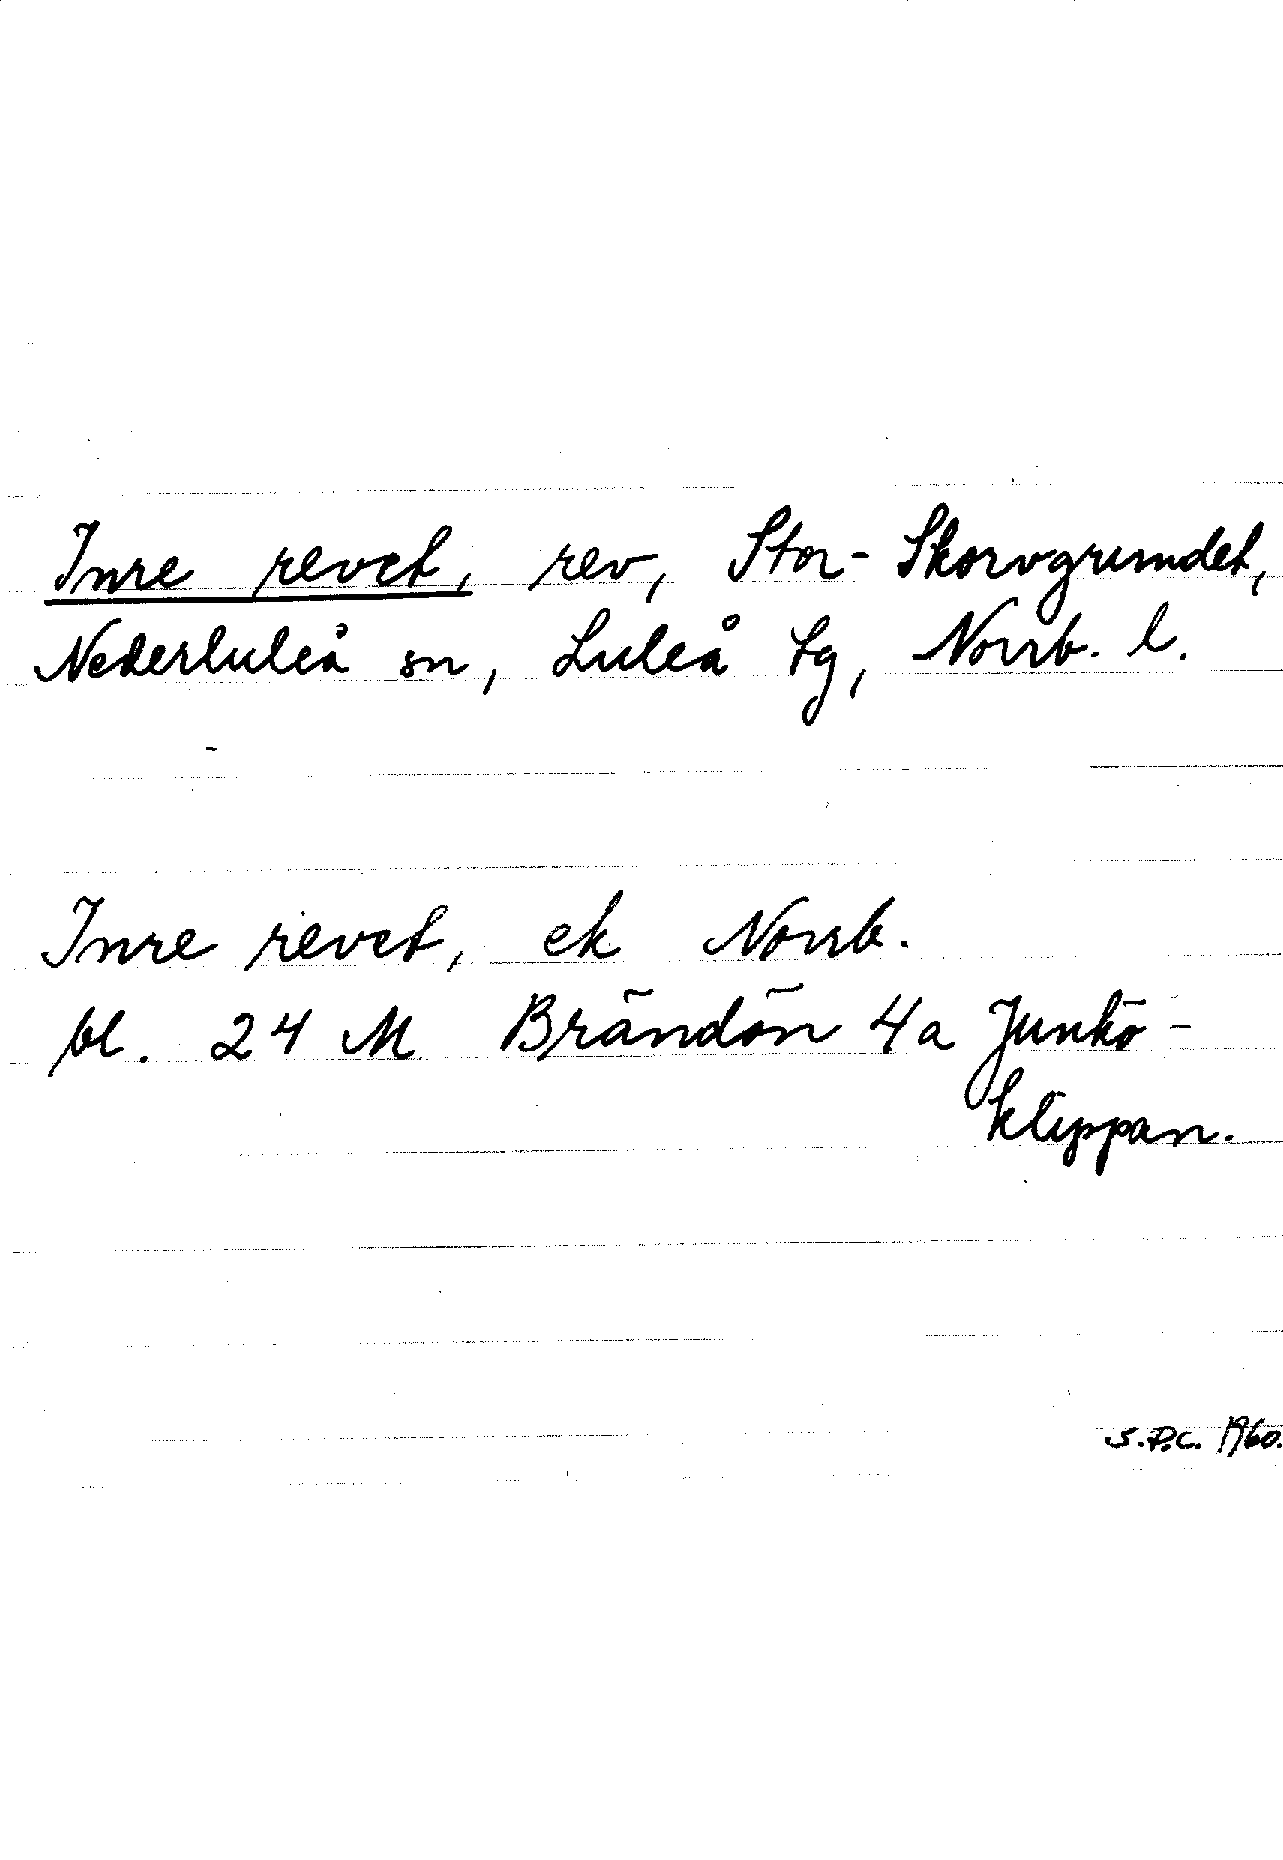 Inre revet, rev, Stor-Skorvgrundet,
Nederluleå sn, Luleå tg, Norrb. l.
Inre revet, ek Norrb.
bl. 24 M Brändön 4a Junkö-
klippan.
S.P.C. 1960.